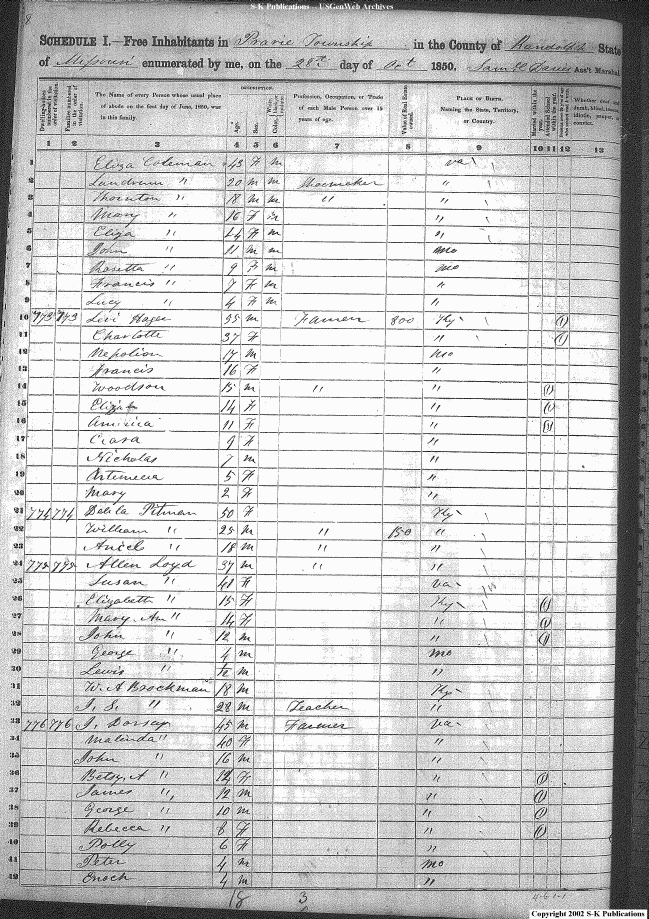 S-K Publications - USGenWeb Archives
SCHEDULE I.—Free Inhabitants in Prarie Township in the County of Randolph State
of Missouri enumerated by me, on the 28th day of Oct 1850. Saml C Davis Ass't Marshal
DESCRIPTION.
Dwelling-houses numbered in the order of visitation.
Families numbered in the order of visitation.
The Name of every Person whose usual place of abode on the first day of June, 1850, was in this family.
Age.
Sex.
Profession, Occupation, or Trade of each Male Person over 15 years of age.
Value of Real Estate owned.
PLACE OF BIRTH. Naming the State, Territory, or Country.
Married within the year.
1 2 3 4 5 6 7 8 9 10 11 12 13
1 Eliza Coleman 43 F m Va
2 Landrum " 20 m m Shoemaker "
3 Thornton " 18 m m " "
4 Mary " 16 F m "
5 Eliza " 14 F m "
6 John " 11 m m Mo
7 Rosetta " 9 F m Mo
8 Francis " 7 F m "
9 Lucy " 4 F m "
10 773 773 Levi Hager m Farmer 800 Ky (1)
11 Charlotte 37 F " (1)
12 Nepolion 17 m Mo
13 Francis 16 F "
14 Woodson 15 m " " (1)
15 Elizab 14 F " (1)
16 11 F " (1)
17 Clara 9 F "
18 Nicholas 7 m "
19 Artemecia 5 F "
20 Mary 2 F "
21 774 774 Delila Pitman 50 F Ky
22 William " 25 m " 150 "
23 " 18 m " "
24 775 775 Allen Loyd 37 m " "
25 Susan " 41 F Va
26 Elizabeth " 15 F Ky (1)
27 Mary. An " 14 F " (1)
28 John " 12 m " (1)
29 George " 4 m Mo
30 Lewis " m "
31 W. A Brockman 18 m Ky
32 J. S. " 28 m Teacher "
33 776 776 J. Dorsey 45 m Farmer Va
34 Malinda " 40 F "
35 John " 16 m "
36 Betsy. A " 14 F " (1)
37 James " 12 m " (1)
38 George " 10 m " (1)
39 Rebecca " 8 F " (1)
40 Polly 6 F "
41 Peter 4 m Mo
42 Enoch 4 m "
18 3 4-6-1-1
Copyright 2002 S-K Publications